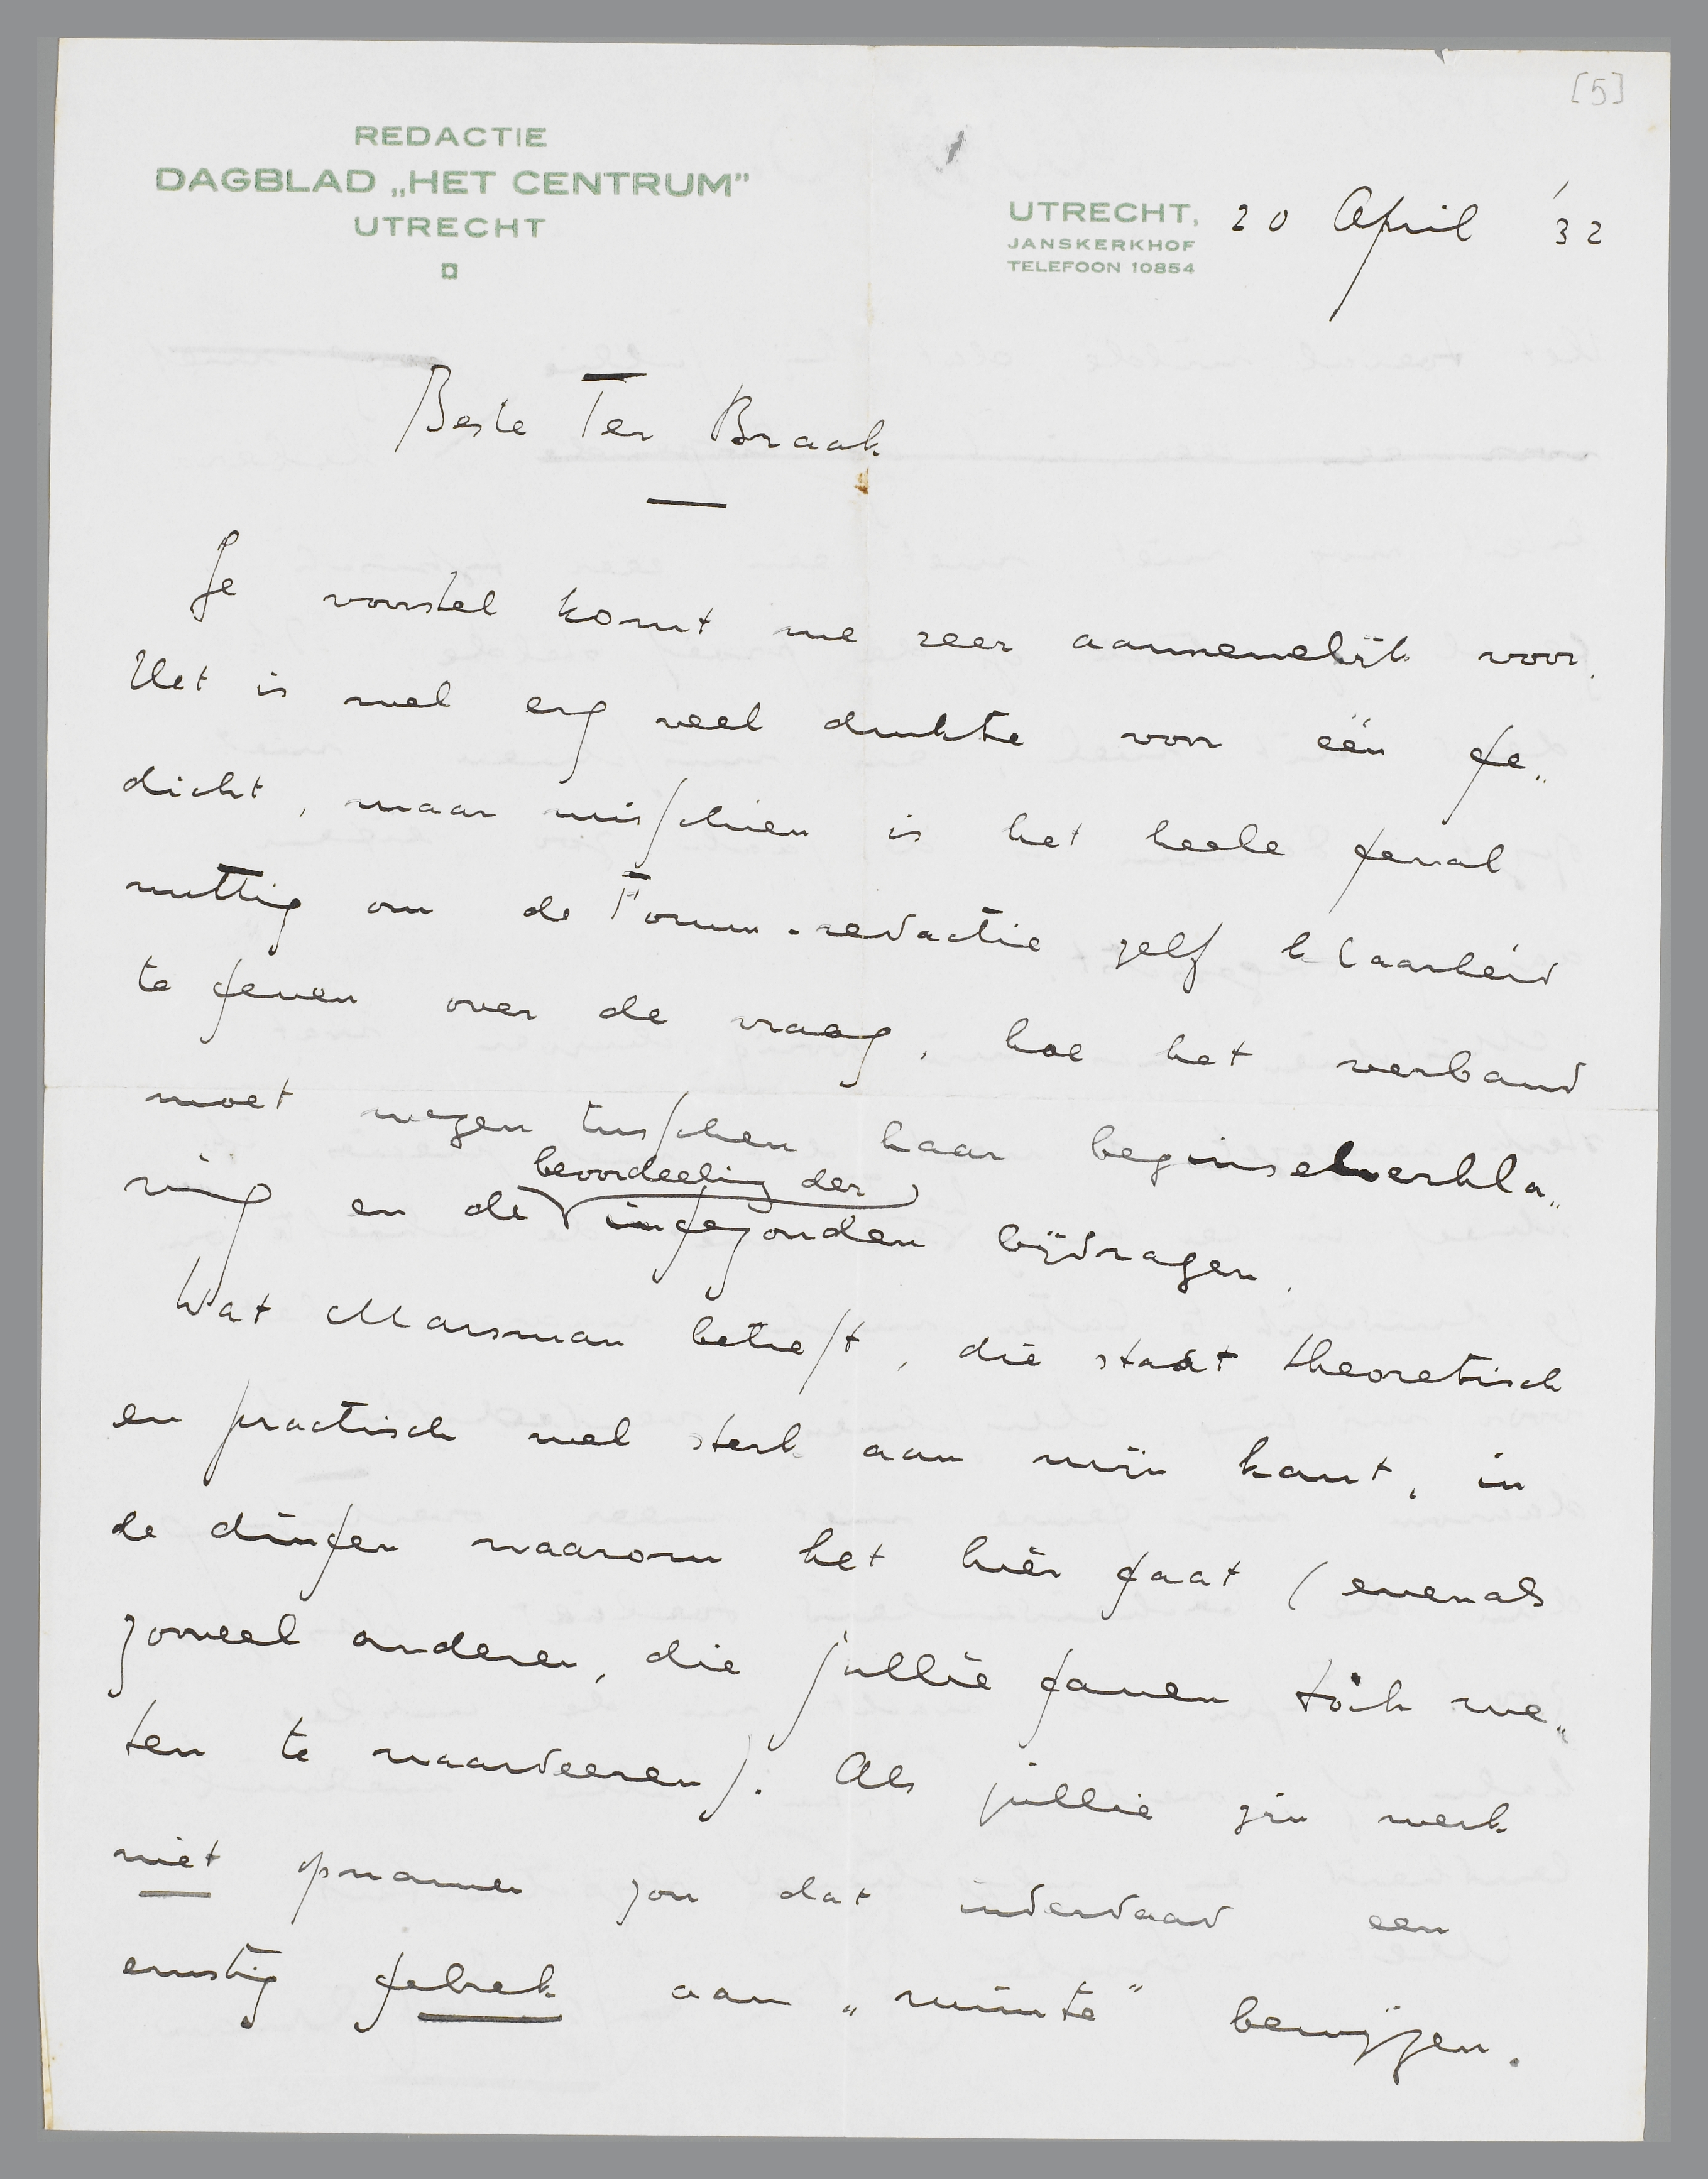 [5]
REDACTIE
DAGBLAD „HET CENTRUM”
UTRECHT
UTRECHT, 20 April '32
JANSKERKHOF
TELEFOON 10854
Beste Ter Braak
Je voorstel komt me zeer aannemelijk voor.
Het is wel erg veel drukte voor één ge„
dicht, maar misschien is het heele geval
nuttig om de Forum-redactie zelf klaarheid
te geven over de vraag, hoe het verband
moet wezen tusschen haar beginselverkla„
ring en de beoordeeling der ingezonden bijdragen.
Wat Marsman betreft, die staat theoretisch
en practisch wel sterk aan mijn kant, in
de dingen waarom het hier gaat (evenals
zooveel anderen, die jullie gaven tóch we„
ten te waardeeren). Als jullie zijn werk
niet opnamen zou dat inderdaad een
ernstig gebrek aan „ruimte” bewijzen.